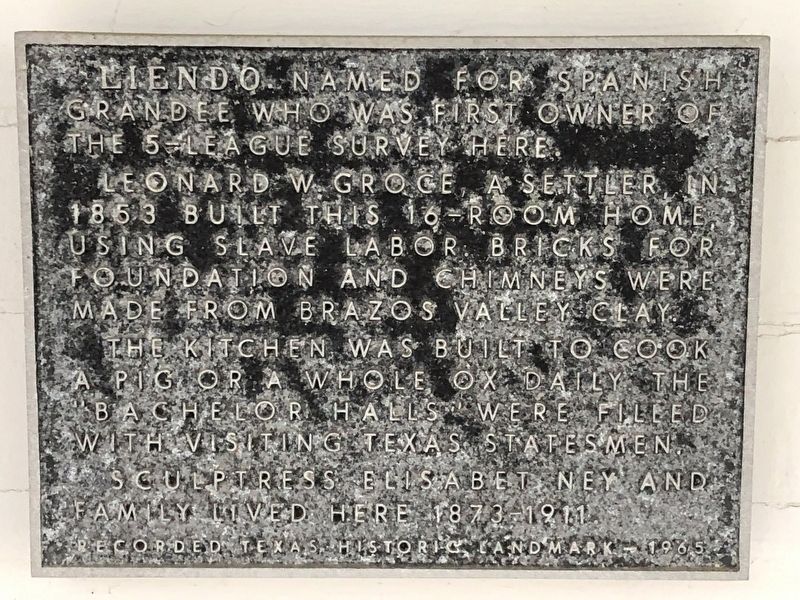 LIENDO NAMED FOR SPANISH
GRANDEE WHO WAS FIRST OWNER OF
THE 5-LEAGUE SURVEY HERE.
LEONARD W. GROCE, A SETTLER, IN
1853 BUILT THIS 16-ROOM HOME,
USING SLAVE LABOR. BRICKS FOR
FOUNDATION AND CHIMNEYS WERE
MADE FROM BRAZOS VALLEY CLAY.
THE KITCHEN WAS BUILT TO COOK
A PIG OR A WHOLE OX DAILY. THE
"BACHELOR HALLS" WERE FILLED
WITH VISITING TEXAS STATESMEN.
SCULPTRESS ELISABET NEY AND
FAMILY LIVED HERE 1873-1911.
RECORDED TEXAS HISTORIC LANDMARK - 1965